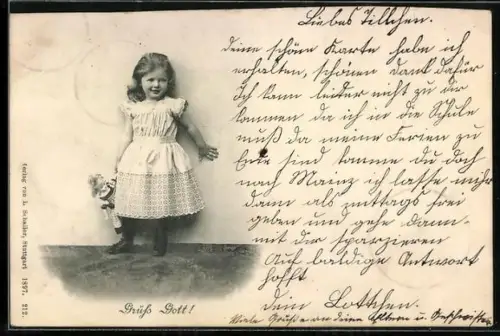 Liebes Tillchen.
Deine schöne Karte habe ich
erhalten, schönen dank dafür
Ich kann leider nicht zu dir
kommen da ich in die Schule
muß da meine Ferien zu
Ende sind komme du doch
nach Mainz ich lasse mihr
dann als mittags frei
geben und gehe dann
mit der sparzieren
Auf baldige Antwort
hofft
dein Lottchen.
Viele Grüße an deine Eltern u. Geschwister
Gruß Gott!
Verlag von L. Schaller, Stuttgart 1897. 212.